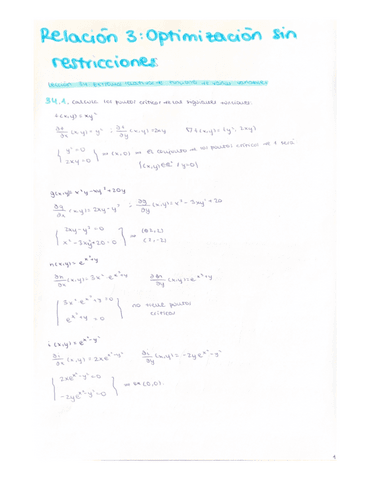 Relación 3: Optimización sin
restricciones
3.4.1. Calcular los puntos críticos de las siguientes funciones:
f(x,y)=xy²
∂f/∂x (x,y)=y² ; ∂f/∂y (x,y)=2xy ∇f(x,y)=(y², 2xy)
{ y²=0
2xy=0 } ⇒ (x,0) ⇒ El conjunto de los puntos críticos de f será:
{(x,y)∈ℝ² / y=0}
g(x,y)=x²y-xy³+20y
∂g/∂x (x,y)=2xy-y³ ; ∂g/∂y (x,y)=x²-3xy²+20
{ 2xy-y³=0
x²-3xy²+20=0 } ⇒ (2,2)
(2,-2)
h(x,y)=e^(x³+y)
∂h/∂x (x,y)=3x² e^(x³+y) ∂h/∂y (x,y)=e^(x³+y)
{ 3x² e^(x³+y)=0
e^(x³+y)=0 } no tiene puntos
críticos
i(x,y)=e^(x²-y²)
∂i/∂x (x,y)=2xe^(x²-y²) ∂i/∂y (x,y)=-2ye^(x²-y²)
{ 2xe^(x²-y²)=0
-2ye^(x²-y²)=0 } ⇒ (0,0)